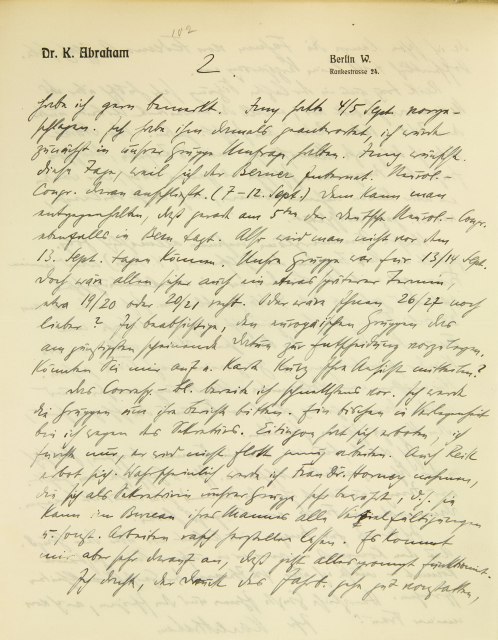 102
Dr. K. Abraham
2.
Berlin W.
Rankestrasse 24.
habe ich gern bemerkt. Jung hatte 4/5 Sept. vorge-
schlagen. Ich habe ihm damals geantwortet, ich würde
zunächst in unsrer Gruppe Umfrage halten. Jung wünscht
diese Tage, weil sich der Berner internat. Neurol.-
Congr. daran anschließt. (7–12. Sept.) Dem kann man
entgegenhalten, daß grade am 5ten der deutsche Neurol.-Congr.
ebenfalls in Bern tagt. Also wird man nicht vor dem
13. Sept. tagen können. Unsre Gruppe war für 13/14 Sept.
Doch wäre allen sicher auch ein etwas späterer Termin,
etwa 19/20 oder 20/21 recht. Oder wäre Ihnen 26/27 noch
lieber? Ich beabsichtige, den europäischen Gruppen das
am günstigsten scheinende Datum zur Entscheidung vorzulegen.
Könnten Sie mir auf e. Karte kurz Ihre Ansicht mitteilen?
Das Corresp.-Bl. bereite ich schnellstens vor. Ich werde
die Gruppen um ihre Berichte bitten. Ein bischen in Verlegenheit
bin ich wegen des Sekretärs. Eitingon hat sich erboten, ich
fürchte nur, er wird nicht flott genug arbeiten. Auch Reik
erbot sich. Wahrscheinlich werde ich Frau Dr. Horney nehmen,
die sich als Sekretärin unsrer Gruppe sehr bewährt, d. h. sie
kann im Bureau ihres Mannes alle Vervielfältigungen
u. sonst. Arbeiten rasch herstellen lassen. Es kommt
mir aber sehr darauf an, daß jetzt alles prompt funktioniert.
Ich denke, der Druck des Jahrb. geht gut vonstatten,